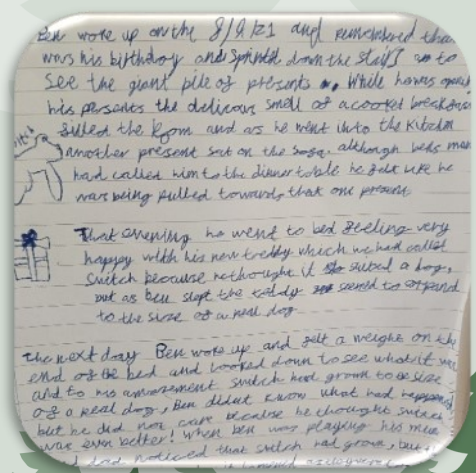 Ben woke up on the 8/9/21 and remembered that
was his birthday and sprinted down the stairs to
See the giant pile of presents. While he was
his persents the delicous smell of a cooket breakfast
filled the Room and as he went into the kitchen
annother present sat on the sofa. although bens mum
had called him to the dinner table he felt like he
was being pulled towards that one present.
That evening he went to bed feeling very
happy with his new teddy which he had called
Snitch because he thought it suited a dog,
but as ben slept the teddy seemed to expand
to the size of a real dog.
the next day Ben woke up and felt a weight on the
end of the bed and looked down to see what it
and to his amazement snitch had grown to be size
of a real dog, Ben didnt know what had happened
but he did not care because he thought snitch
was even better! when ben was playing his
dad noticed that snitch had grown, but